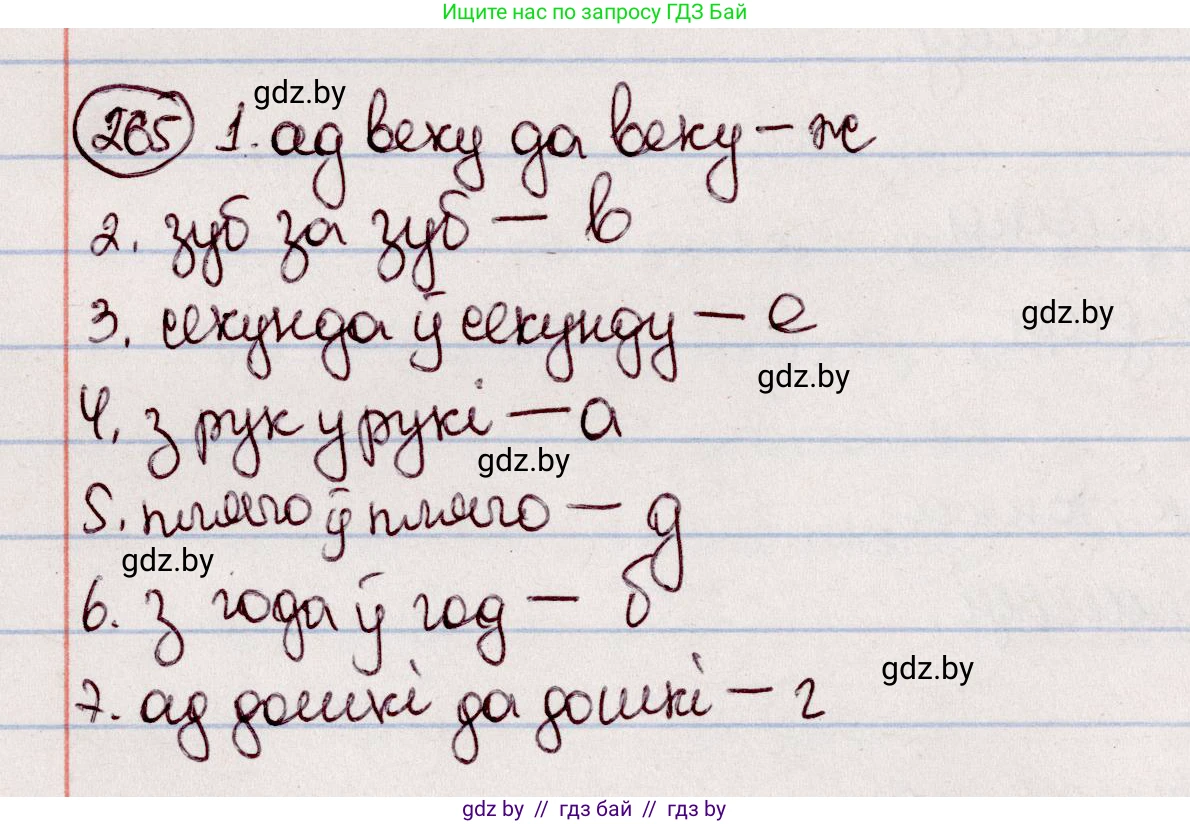 Ищите нас по запросу ГДЗ Бай
gdz.by
265 1. ад веку да веку – ж
2. зуб за зуб – в
3. секунда ў секунду – е
gdz.by
gdz.by
4. з рук у рукі – а
gdz.by
5. плячо ў плячо – д
gdz.by
6. з года ў год – б
gdz.by
7. ад дошкі да дошкі – г
gdz by // гдз бай // гдз by